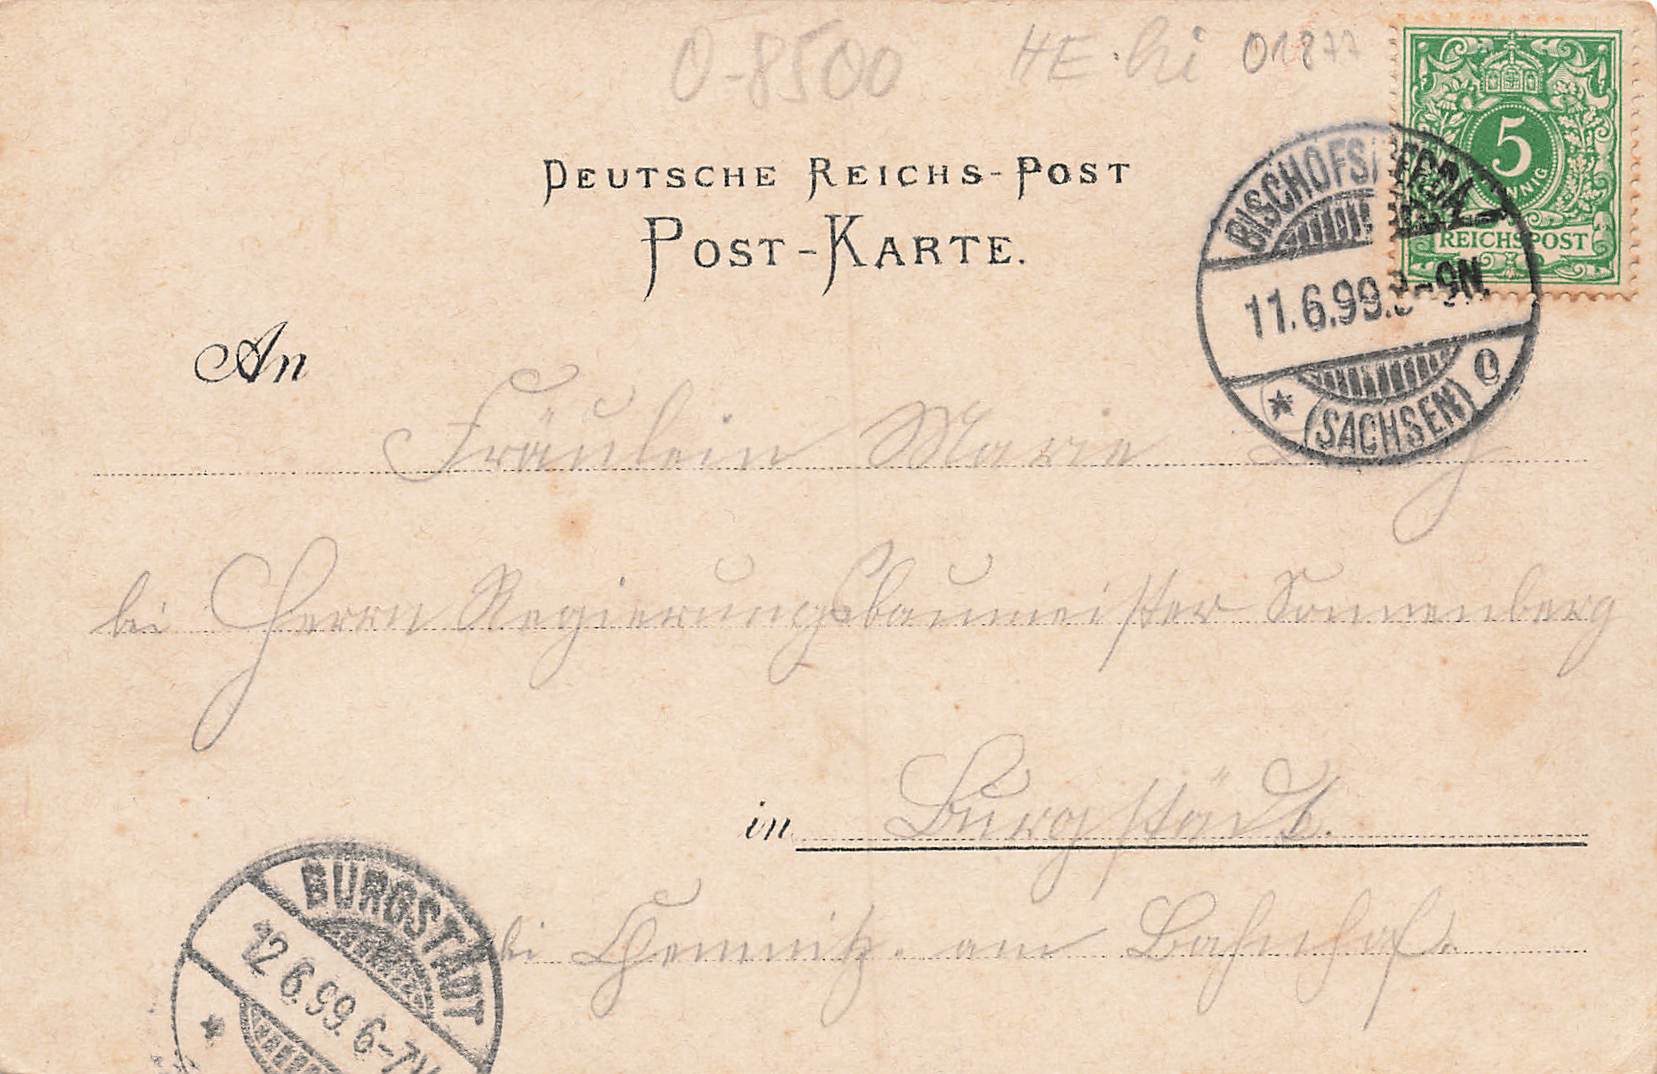 0-8500 HE. 01877
5
PFENNIG
REICHSPOST
DEUTSCHE REICHS-POST
POST-KARTE.
BISCHOFSWERDA
11.6.99. 8-9N.
(SACHSEN)
An
Fräulein Marie
bei Herrn Regierungsbaumeister Sonnenberg
in Burgstädt.
bei Chemnitz. am Bahnhof.
BURGSTÄDT
12 6.99. 6-7V